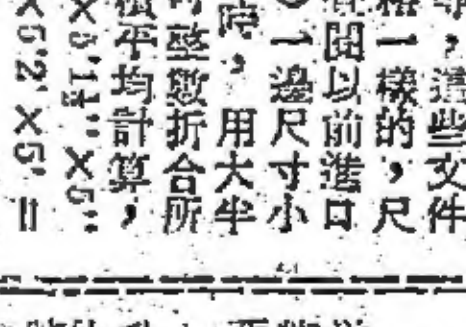 ，這些文件
格一樣的，尺
開以前進口
一邊尺寸小
時，用大半
整數折合所
平均計算，
×5'1½"×5"
×5'2'×5'=